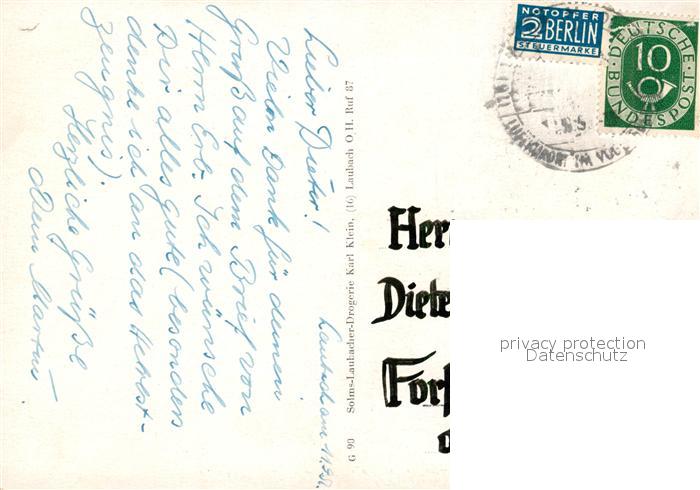 Laubach am 11.9.52
Lieber Dieter!
Vielen Dank für deinen
Gruß auf dem Brief von
Herrn Erb. Ich wünsche
Dir alles gute (besonders
denke ich an das Herbst-
zeugnis).
Herzliche Grüße
Dein Martin
G 90 Solms-Laubacher-Drogerie Karl Klein, (16) Laubach O.H. Ruf 87
NOTOPFER
2 BERLIN
STEUERMARKE
DEUTSCHE BUNDESPOST
10
LUFTKURORT IM
Her
Diete
privacy protection
Datenschutz